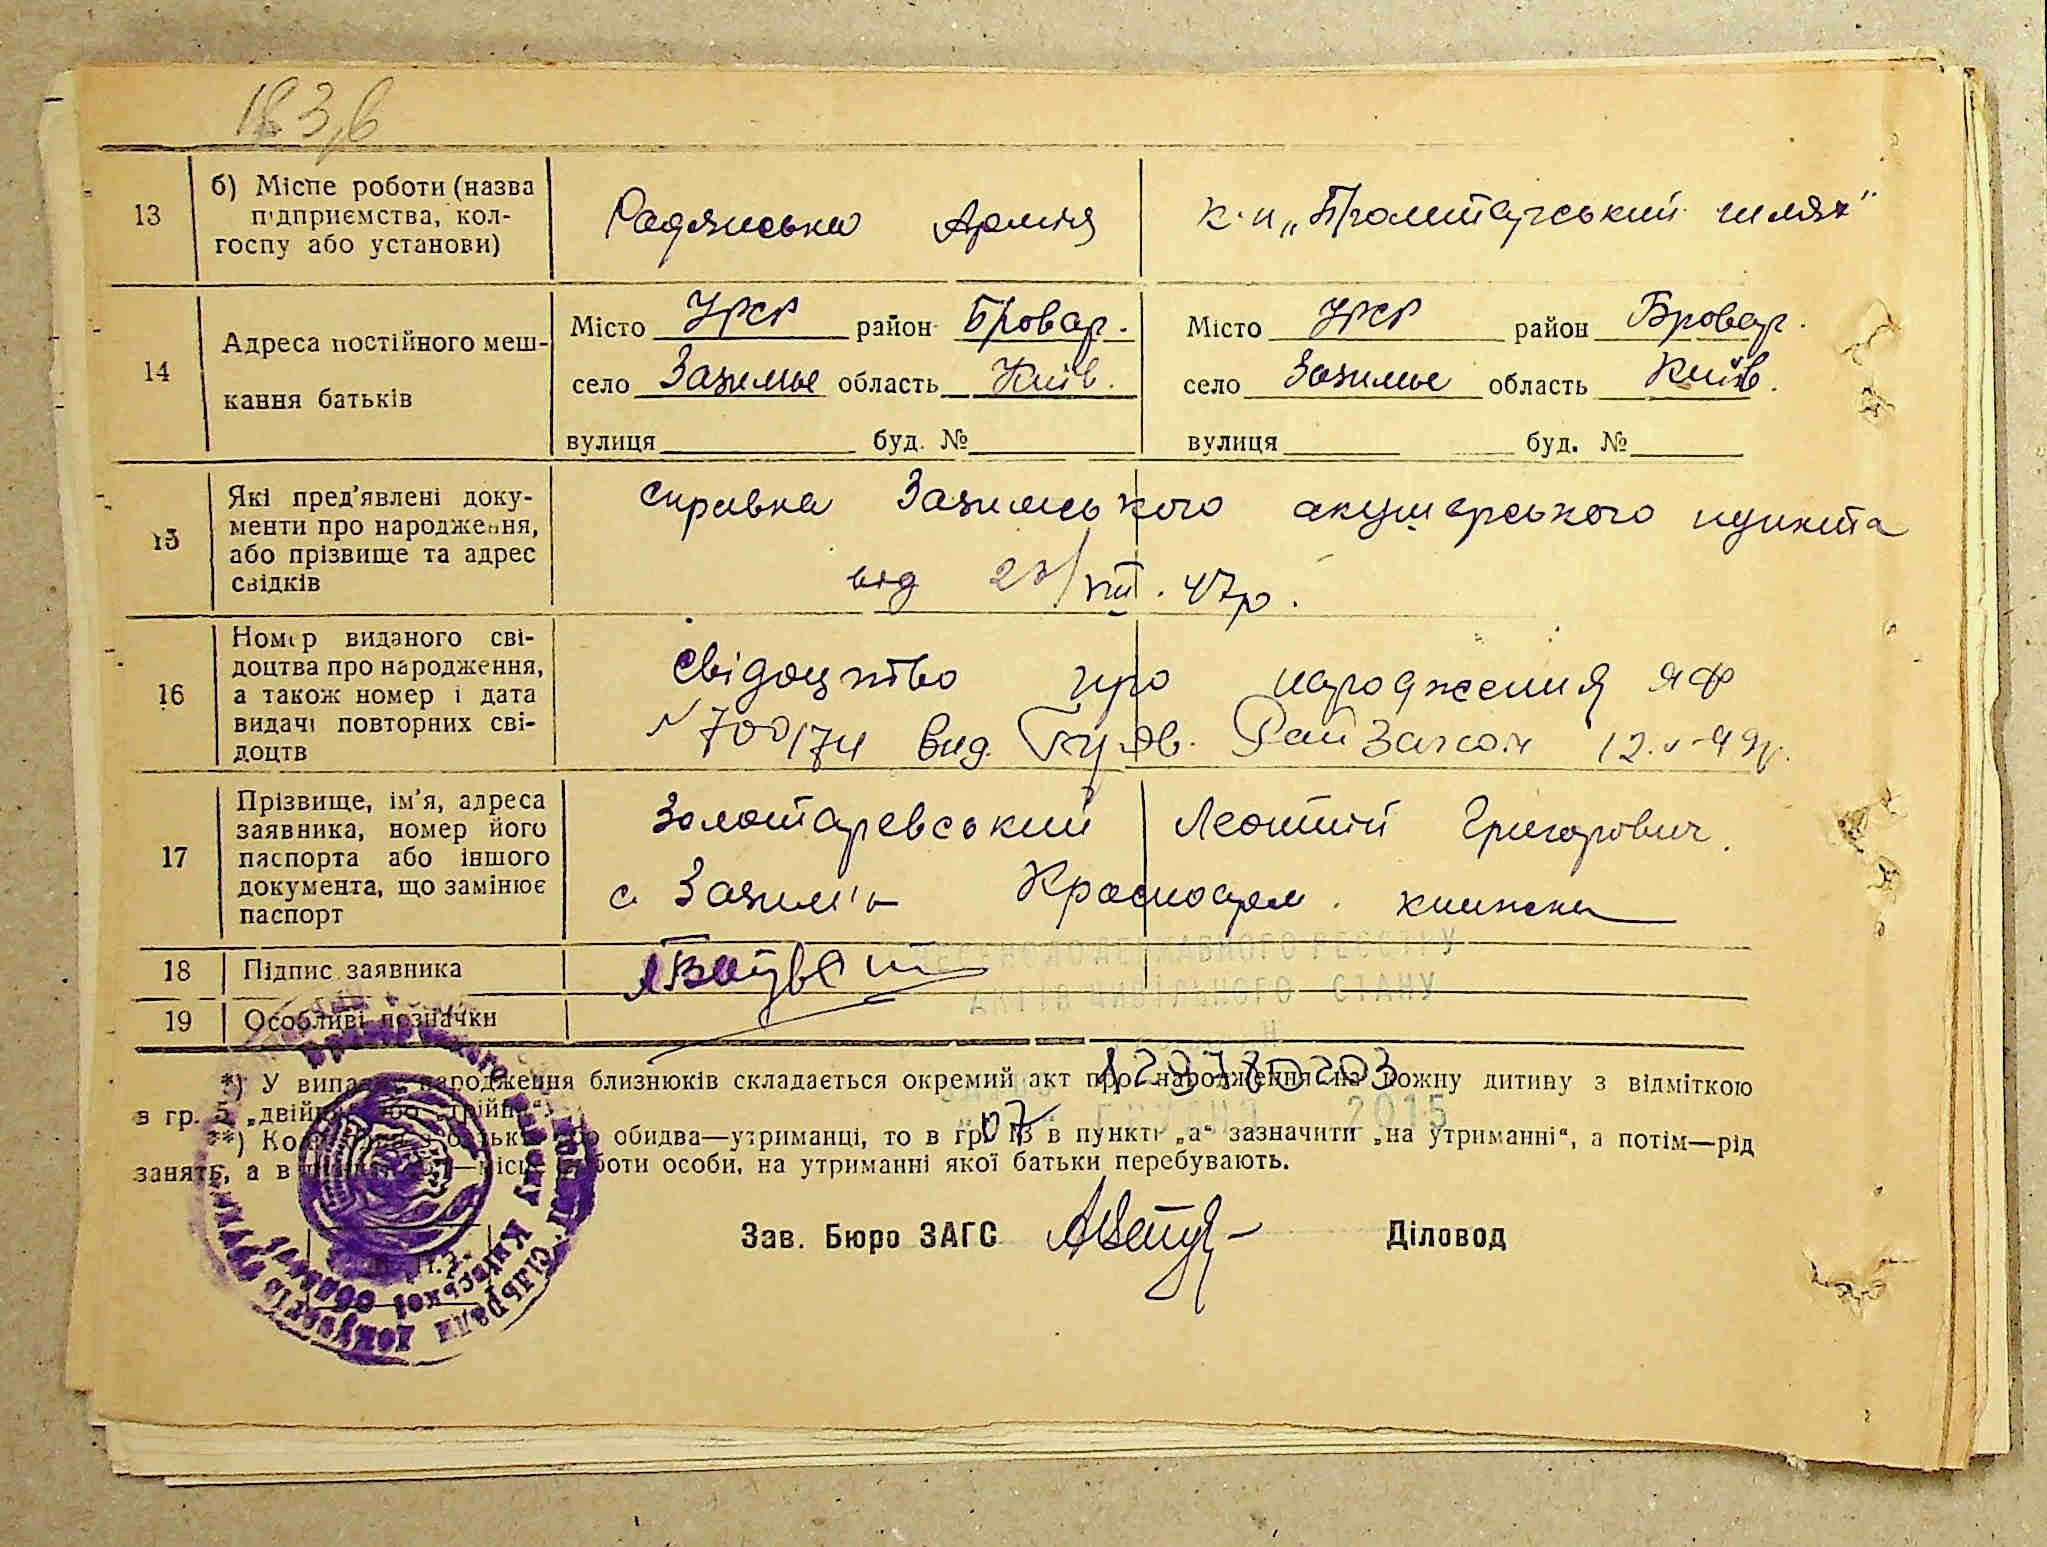 183,б
13
б) Місце роботи (назва
підприємства, кол-
госпу або установи)
Радянська Армія
к-п „Пролитарський шлях"
14
Адреса постійного меш-
кання батьків
Місто УРСР район Бровар.
село Зазимье область Київ.
вулиця буд. №
Місто УРСР район Бровар.
село Зазимье область Київ.
вулиця буд. №
15
Які пред'явлені доку-
менти про народження,
або прізвище та адрес
свідків
справка Зазимського акушерського пункта
від 23/XII. 47р.
16
Номер виданого сві-
доцтва про народження,
а також номер і дата
видачі повторних сві-
доцтв
Свідоцтво про народження ЯФ
№ 700174 вид. РайЗагсом
17
Прізвище, ім'я, адреса
заявника, номер його
паспорта або іншого
документа, що замінює
паспорт
Золотаревський Леонтій Григорович.
с. Зазим'я Красноарм. книжка
18
Підпис заявника
19
Особливі позначки
ВНЕСЕНО ДО ДЕРЖАВНОГО РЕЄСТРУ
АКТІВ ЦИВІЛЬНОГО СТАНУ
07 ГРУДНЯ 2015
*) У випадку народження близнюків складається окремий акт про народження на кожну дитину з відміткою
в гр. 5 „двійня" або „трійня".
**) Коли один з батьків або обидва—утриманці, то в гр. 13 в пункті „а" зазначити „на утриманні", а потім—рід
занять, а в —місце роботи особи, на утриманні якої батьки перебувають.
Зав. Бюро ЗАГС
Діловод
району Київської області
сільради депутатів трудящих